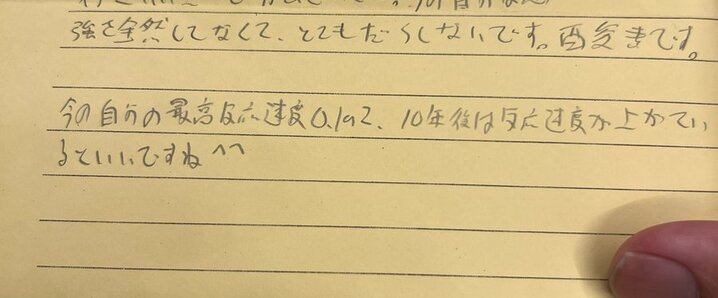 強を全然してなくて、とてもだらしないです。
今の自分の最高反応速度0.192、10年後は反応速度が上がてい
るといいですね^^